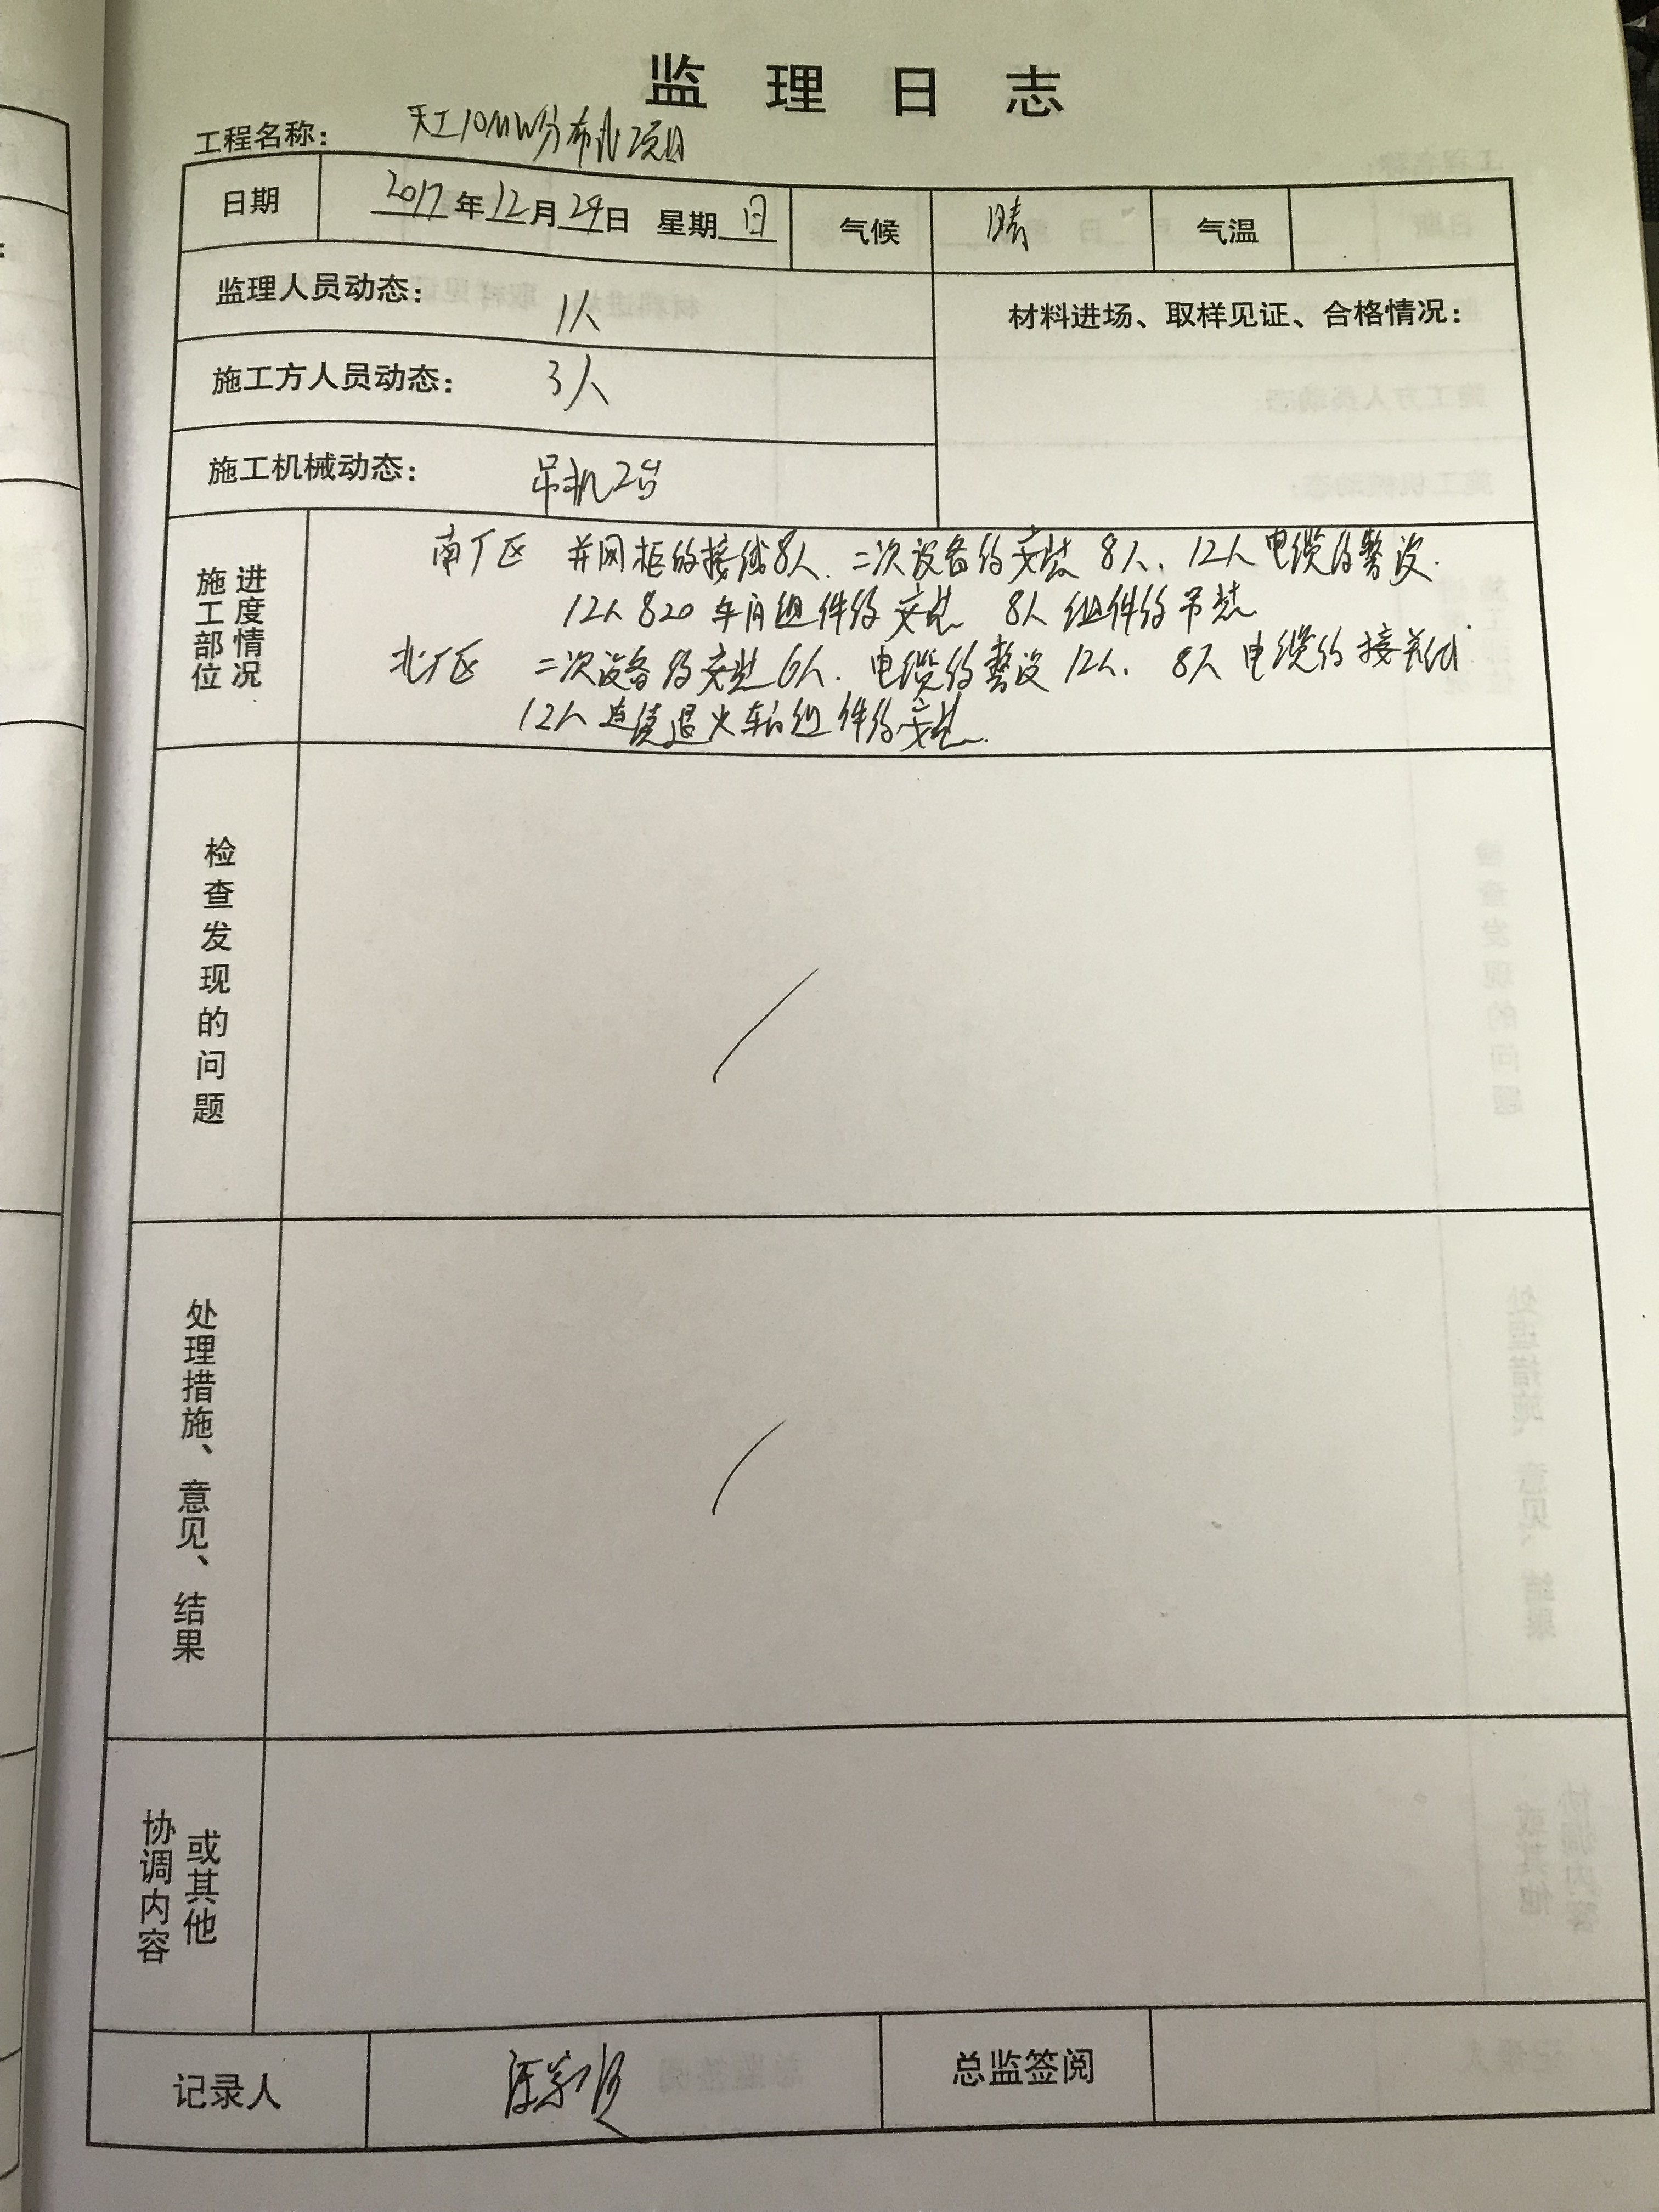 监理日志
工程名称： 天工10MW分布式项目
日期 2017年12月24日 星期日 气候 晴 气温
监理人员动态： 1人 材料进场、取样见证、合格情况：
施工方人员动态： 3人
施工机械动态： 吊机2台
施工部位 进度情况
南厂区 并网柜的接线8人. 二次设备的安装 8人. 12人电缆的敷设.
12人 820 车间组件的安装 8人 组件的吊装
北厂区 二次设备的安装6人. 电缆的敷设12人. 8人 电缆的接
12人 连续退火车间组件的安装.
检查发现的问题 /
处理措施、意见、结果 /
协调内容 或其他
记录人 总监签阅